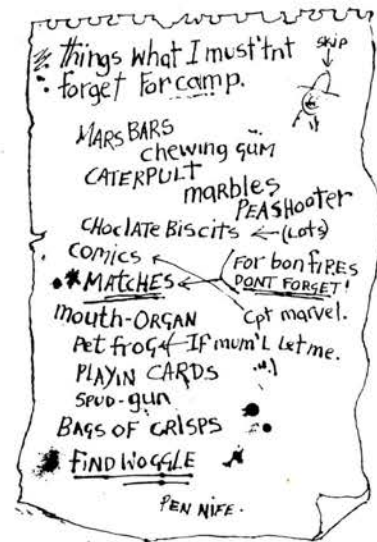 things what I must'tnt
forget For camp.
skip
MARS BARS
chewing gum
CATERPULT
marbles
PEASHooter
CHOCLATE BISCITS ← (Lots)
comics
* MATCHES
For bonfires
DONT FORGET!
Cpt marvel.
mouth-ORGAN
Pet frog ← IF mum'L Let me.
PLAYIN CARDS
SPUD-gun
BAGS OF CRISPS
FIND WOGGLE
PEN NIFE.